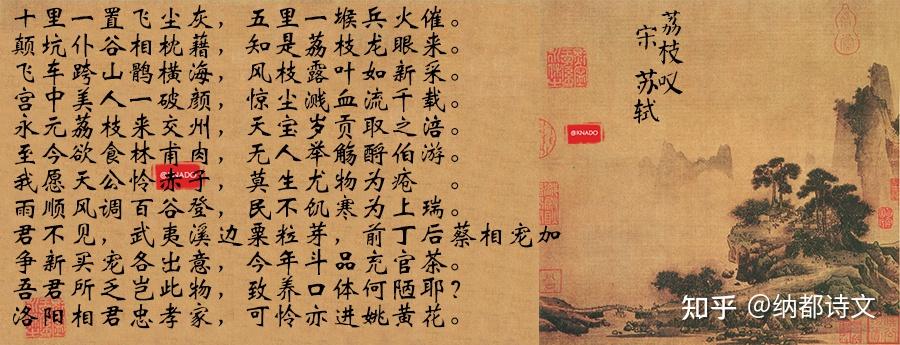 十里一置飞尘灰，五里一堠兵火催。
颠坑仆谷相枕藉，知是荔枝龙眼来。
飞车跨山鹘横海，风枝露叶如新采。
宫中美人一破颜，惊尘溅血流千载。
永元荔枝来交州，天宝岁贡取之涪。
至今欲食林甫肉，无人举觞酹伯游。
我愿天公怜赤子，莫生尤物为疮 。
雨顺风调百谷登，民不饥寒为上瑞。
君不见，武夷溪边粟粒芽，前丁后蔡相宠加
争新买宠各出意，今年斗品充官茶。
吾君所乏岂此物，致养口体何陋耶？
洛阳相君忠孝家，可怜亦进姚黄花。
@KNADO
荔枝叹
宋 苏轼
@KNADO
知乎 @纳都诗文